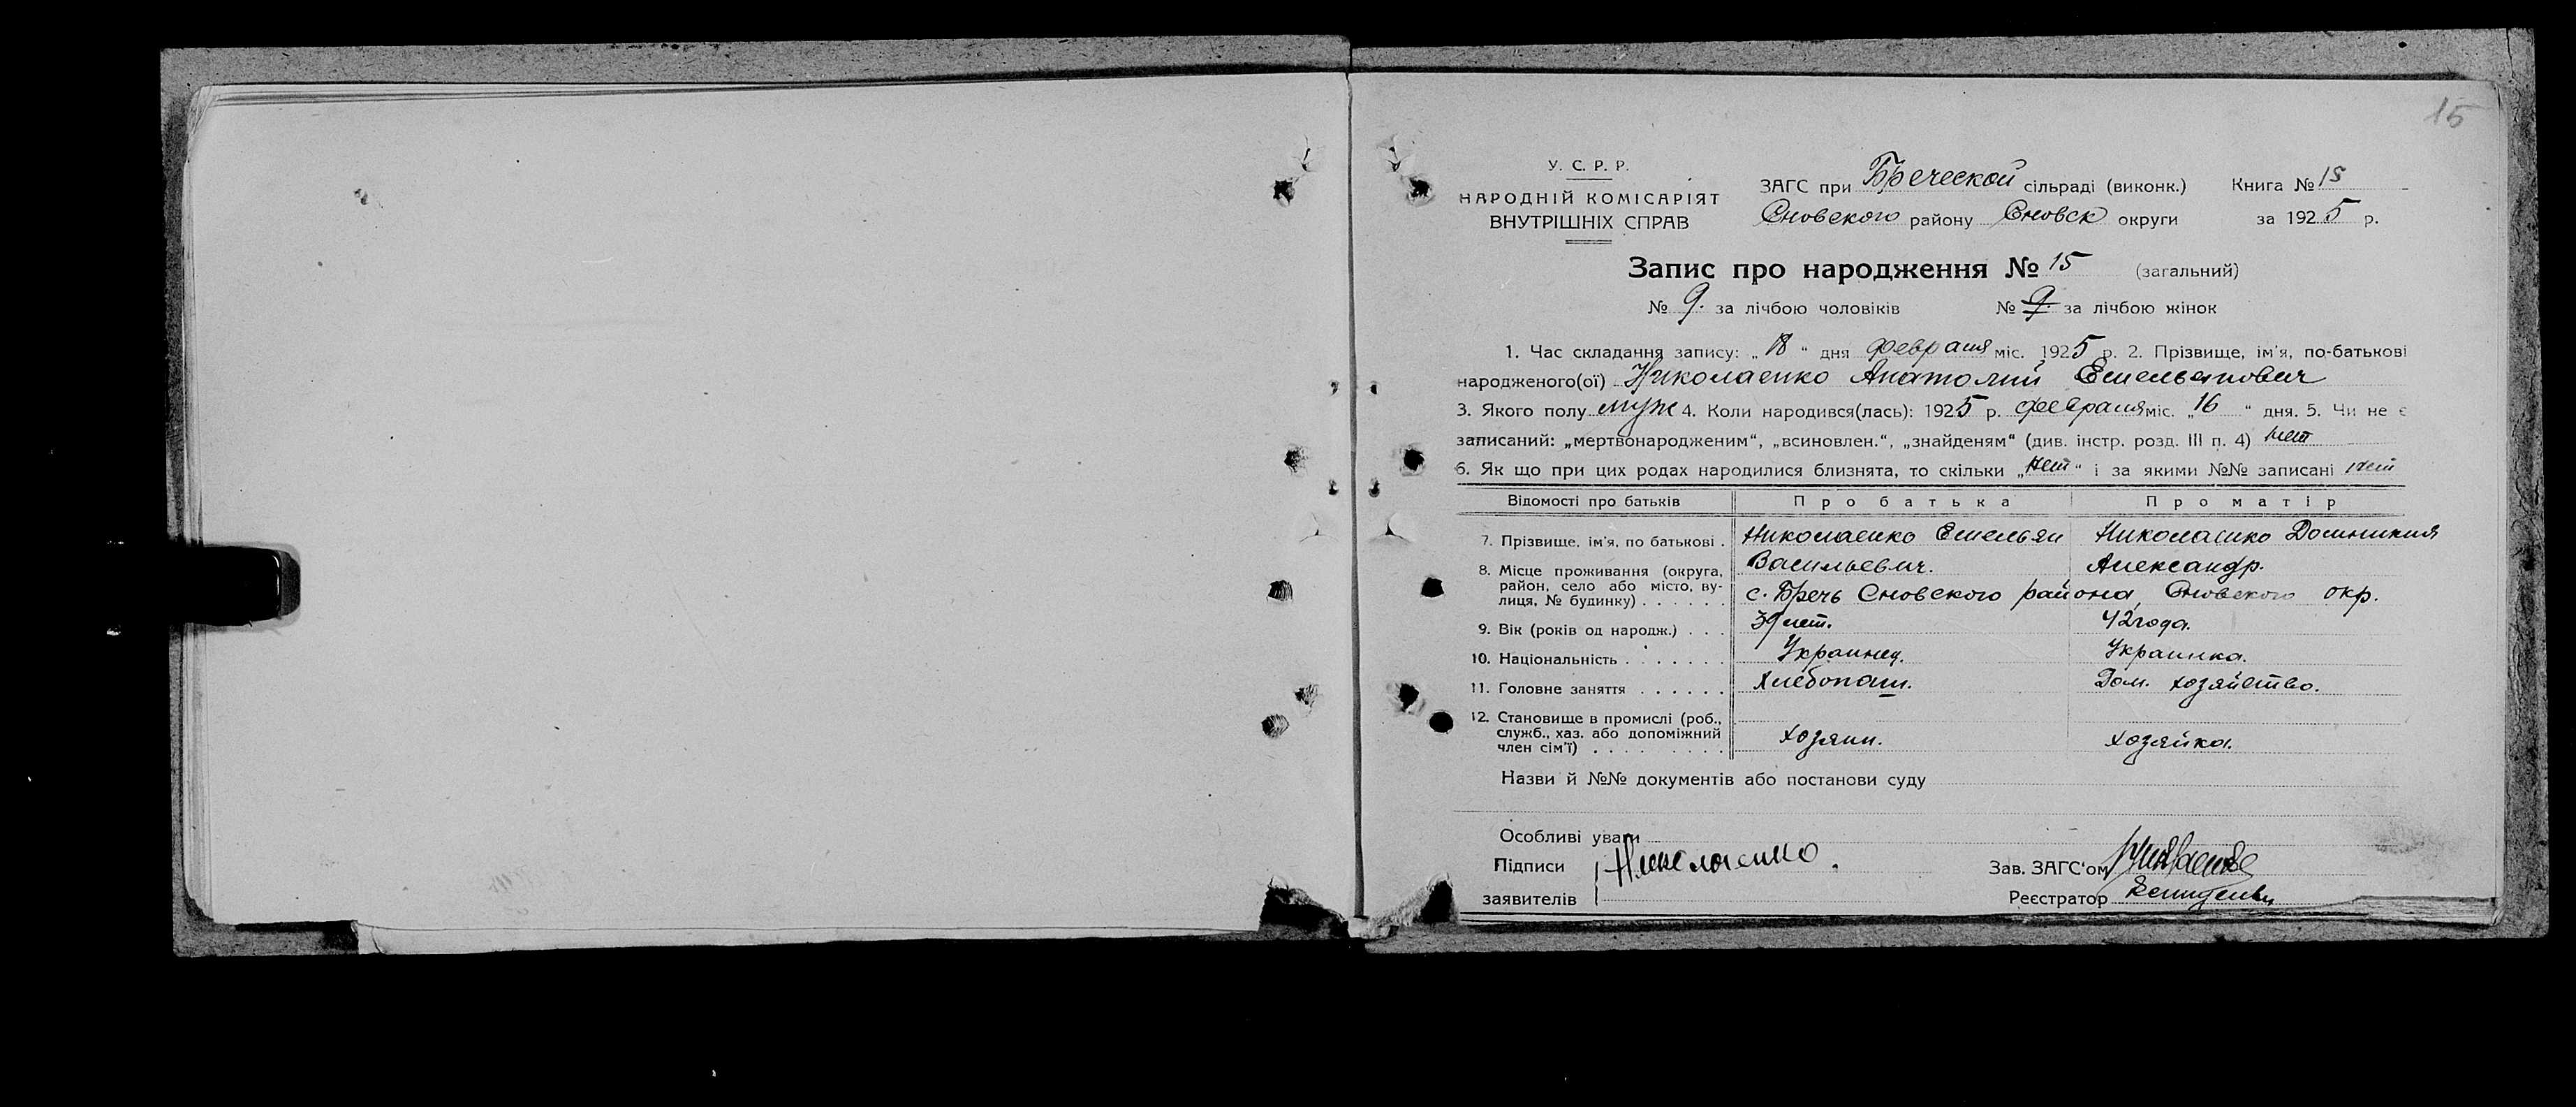 15
У. С. Р. Р.
НАРОДНІЙ КОМІСАРІЯТ
ВНУТРІШНІХ СПРАВ
ЗАГС при Бреческой сільраді (виконк.) Книга № 15
Сновского району Сновск округи за 1925 р.
Запис про народження № 15 (загальний)
№ 9. за лічбою чоловіків № 9. за лічбою жінок
1. Час складання запису: „ 18 “ дня февраля міс. 1925 р. 2. Прізвище, ім'я, по-батькові
народженого(ої) Николаенко Анатолий Емельянович
3. Якого полу муж 4. Коли народився(лась): 1925 р. февраля міс. „ 16 “ дня. 5. Чи не є
записаний: „мертвонародженим“, „всиновлен.“, „знайденям“ (див. інстр. розд. III п. 4) нет
6. Як що при цих родах народилися близнята, то скільки „нет“ і за якими №№ записані нет
Відомості про батьків Про батька Про матір
7. Прізвище, ім'я, по батькові . Николаенко Емельян Николаенко Домникия
Васильевич. Александр.
8. Місце проживання (округа,
район, село або місто, ву-
лиця, № будинку) . . . . . . с. Бречь Сновского района, Сновского окр.
9. Вік (років од народж.) . . . 39 лет. 42 года.
10. Національність . . . . . . . Украинец. Украинка.
11. Головне заняття . . . . . . Хлебопаш. Дом. хозяйство.
12. Становище в промислі (роб.,
служб., хаз. або допоміжний
член сім'ї) . . . . . . . . . хозяин. хозяйка.
Назви й №№ документів або постанови суду
Особливі уваги
Підписи Николаенко. Зав. ЗАГС'ом
заявителів Реєстратор